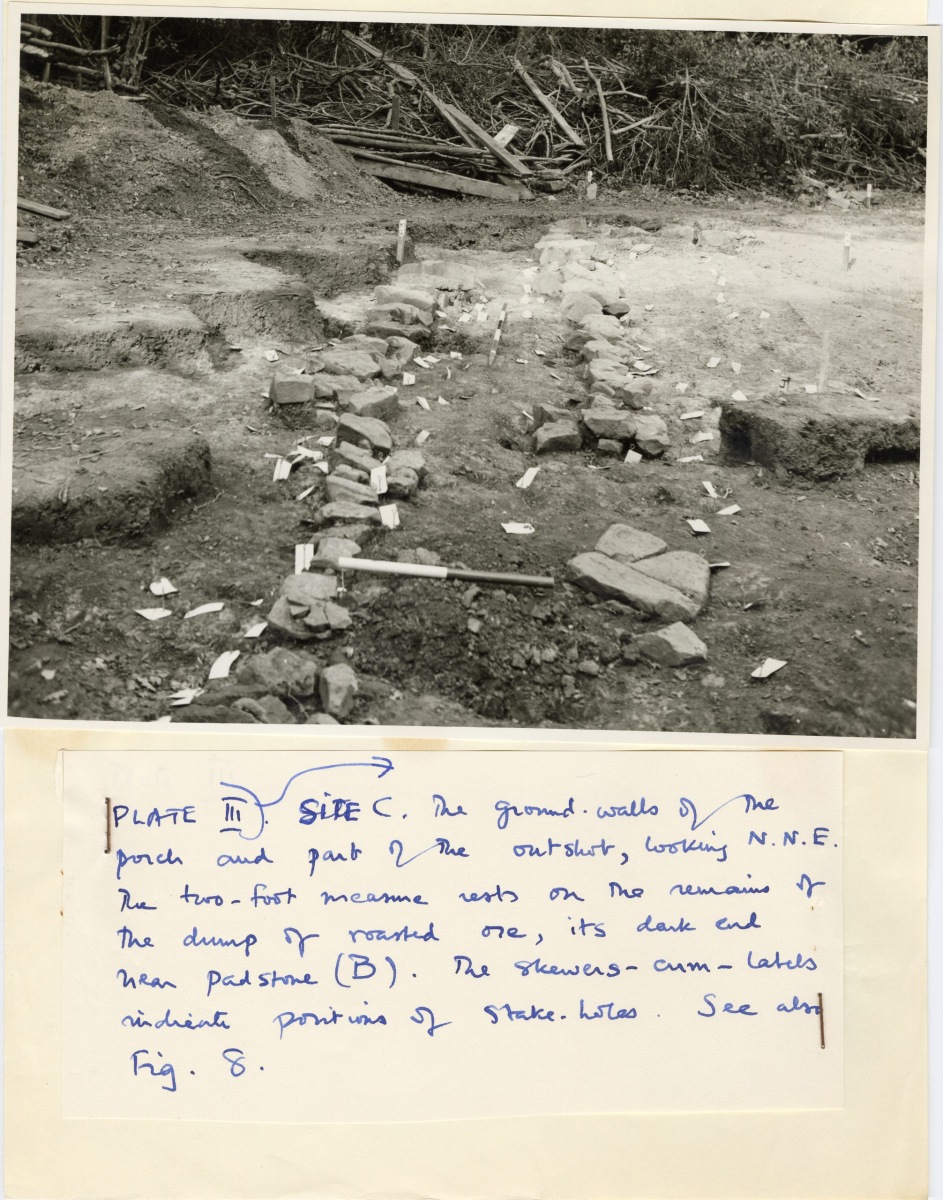 PLATE III. SITE C. The ground-walls of the
porch and part of the outshot, looking N.N.E.
The two-foot measure rests on the remains of
the dump of roasted ore, its dark end
near padstone (B). The skewers-cum-labels
indicate positions of stake-holes. See also
Fig. 8.